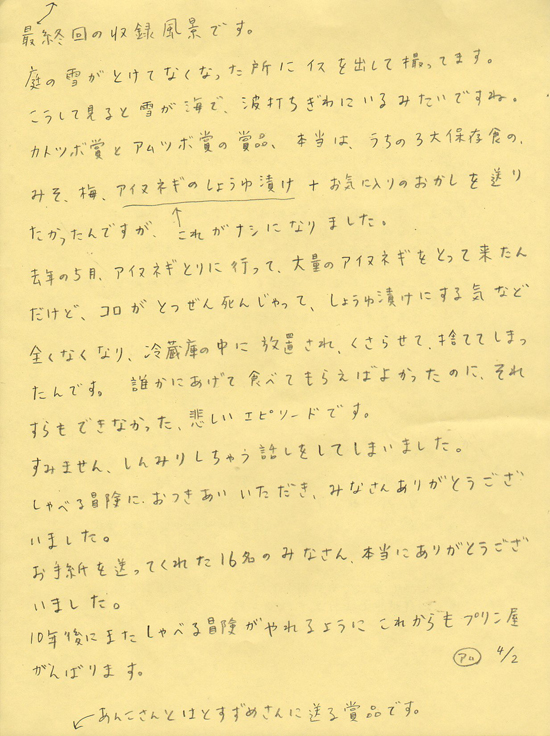 最終回の収録風景です。
庭の雪がとけてなくなった所にイスを出して撮ってます。
こうして見ると雪が海で、波打ちぎわにいるみたいですね。
カトツボ賞とアムツボ賞の賞品、本当は、うちの3大保存食の、
みそ、梅、アイヌネギのしょうゆ漬け + お気に入りのおかしを送り
たかったんですが、これがナシになりました。
去年の5月、アイヌネギとりに行って、大量のアイヌネギをとって来たん
だけど、コロがとつぜん死んじゃって、しょうゆ漬けにする気など
全くなくなり、冷蔵庫の中に放置され、くさらせて、捨ててしまっ
たんです。 誰かにあげて食べてもらえばよかったのに、それ
すらもできなかった、悲しいエピソードです。
すみません、しんみりしちゃう話しをしてしまいました。
しゃべる冒険におつきあいいただき、みなさんありがとうござ
いました。
お手紙を送ってくれた16名のみなさん、本当にありがとうござ
いました。
10年後にまたしゃべる冒険がやれるようにこれからもプリン屋
がんばります。
アロ 4/2
あんこさんとはとすずめさんに送る賞品です。